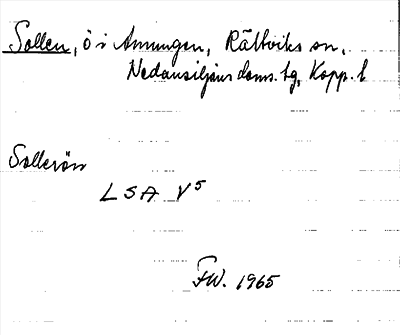 Sollen, ö i Amungen, Rättviks sn,
Nedansiljans doms. tg, Kopp. l
Sollerön
LSA V5
FW. 1965